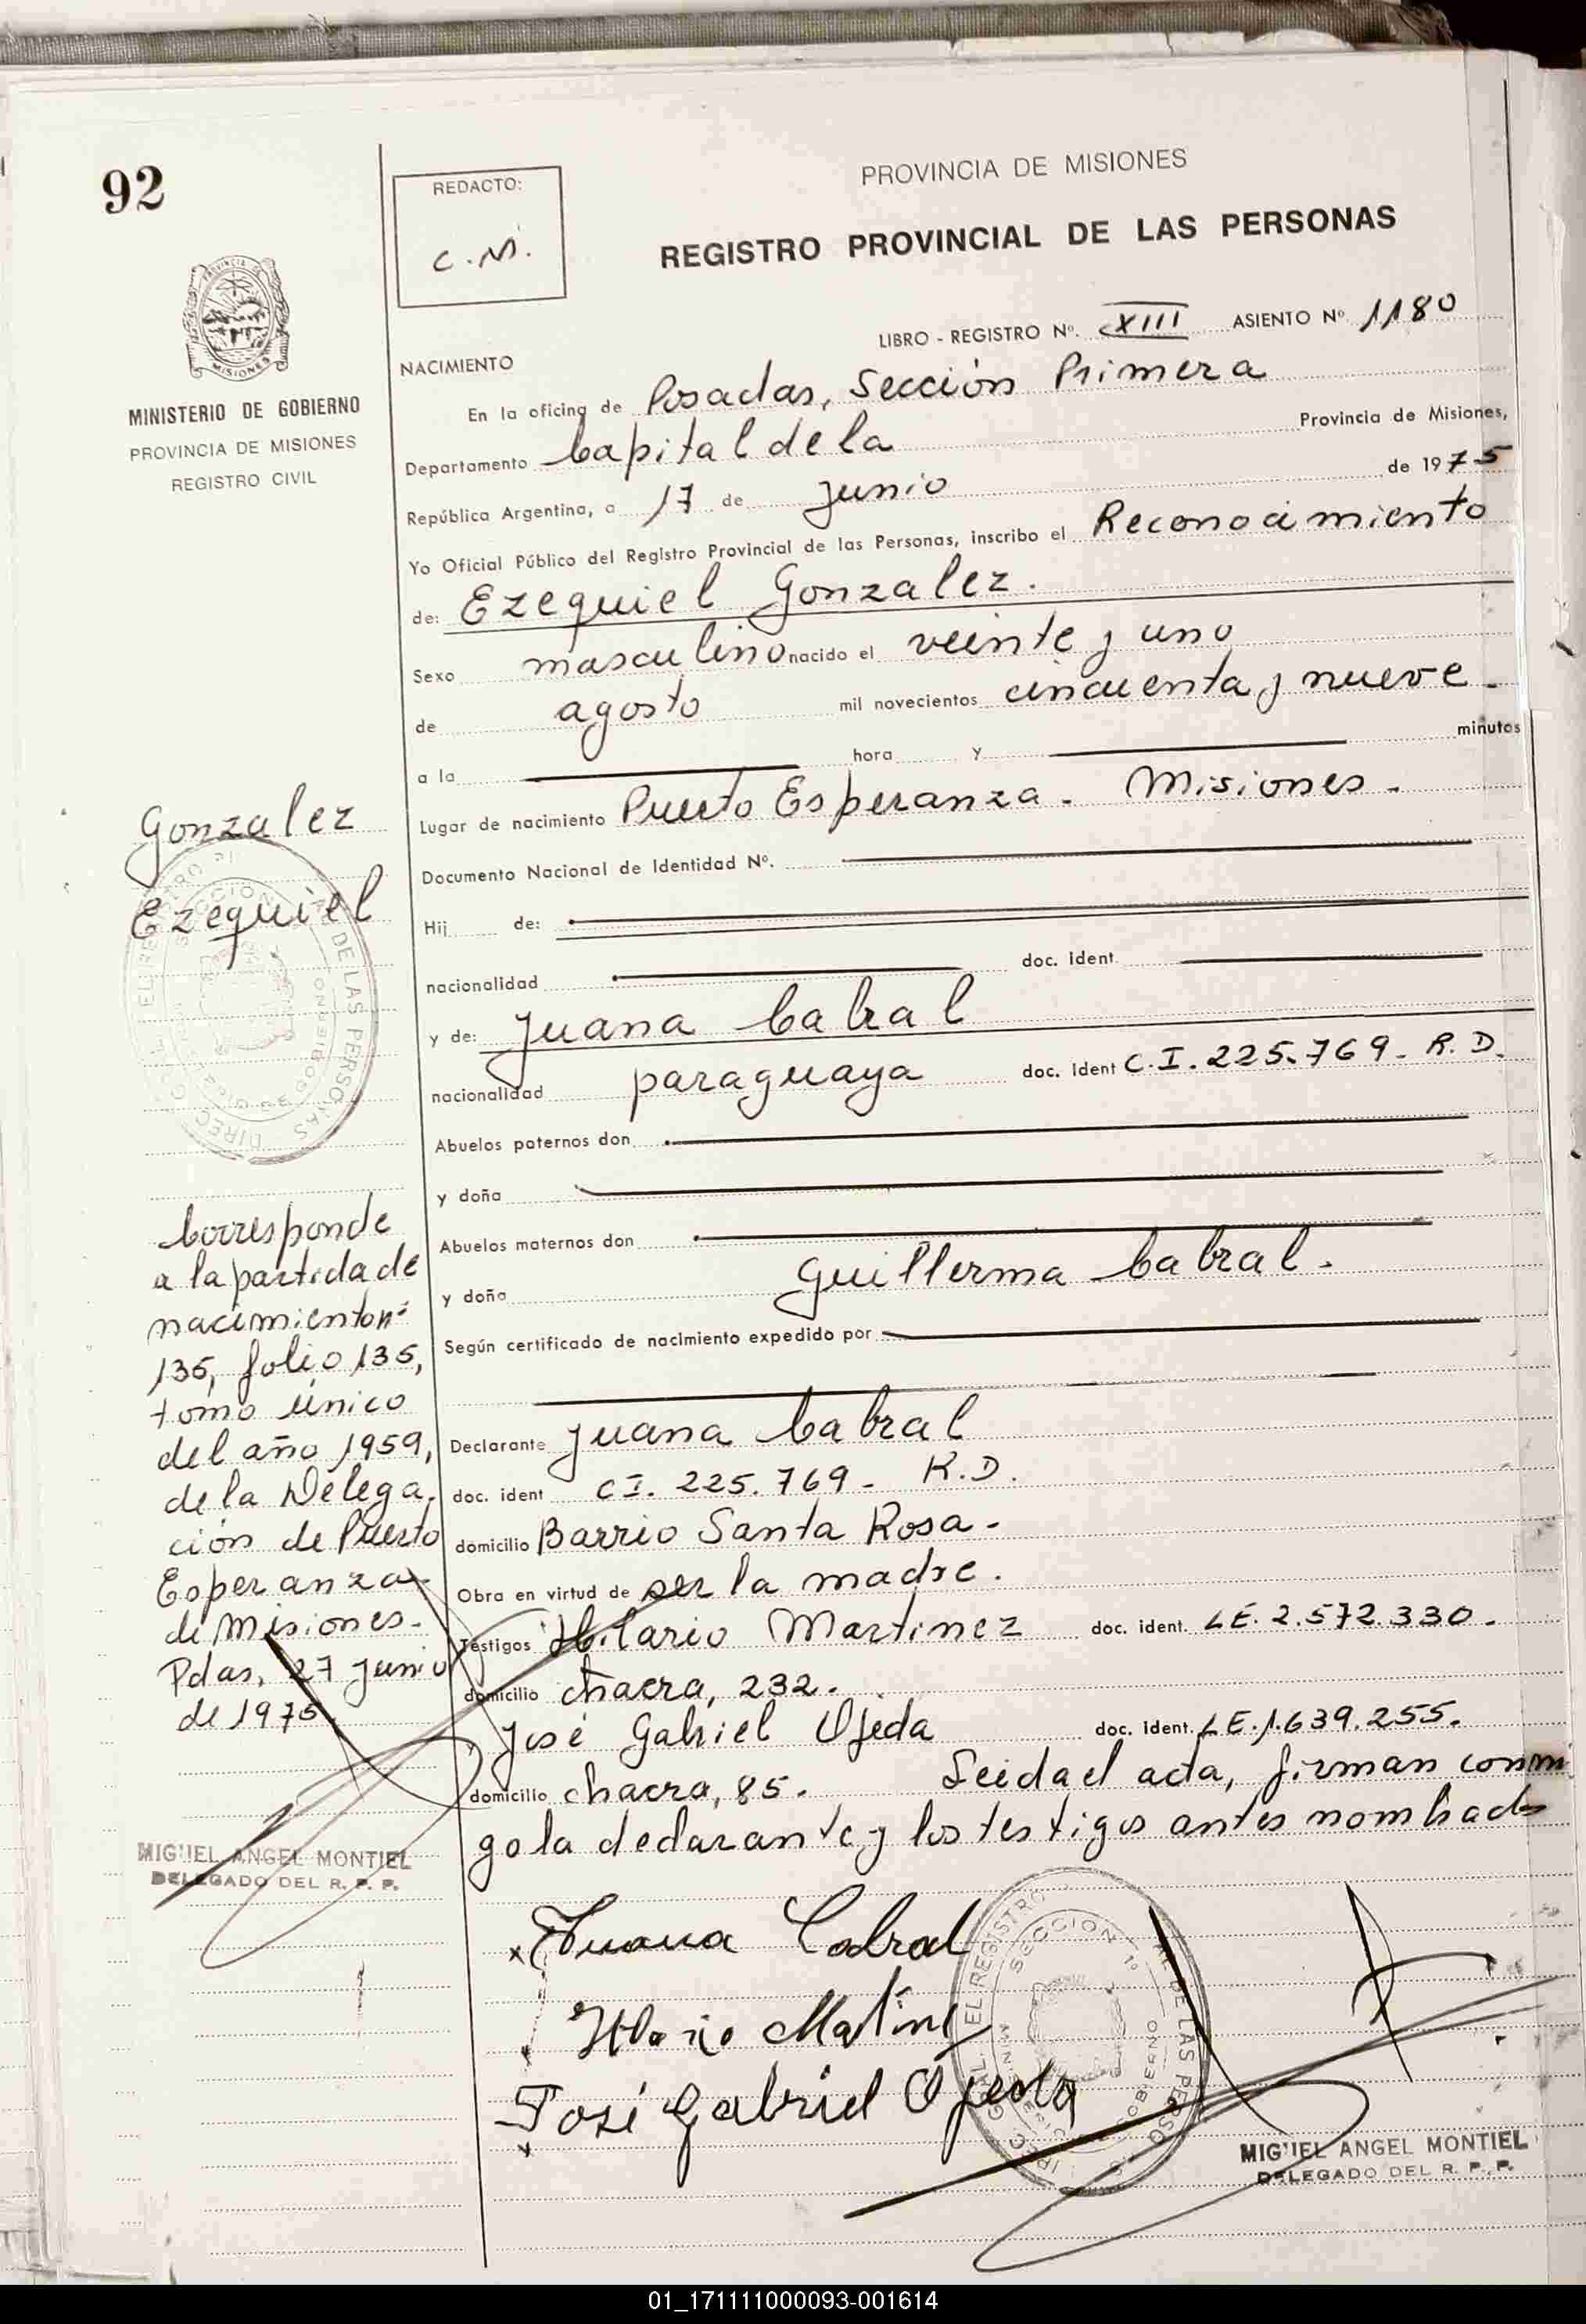 92
REDACTO:
C.M.
PROVINCIA DE MISIONES
REGISTRO PROVINCIAL DE LAS PERSONAS
PROVINCIA DE
MISIONES
MINISTERIO DE GOBIERNO
PROVINCIA DE MISIONES
REGISTRO CIVIL
LIBRO - REGISTRO Nº. XIII ASIENTO Nº. 1180
NACIMIENTO
En la oficina de Posadas, Sección Primera
Departamento Capital de la Provincia de Misiones,
República Argentina, a 17 de Junio de 1975
Yo Oficial Público del Registro Provincial de las Personas, inscribo el Reconocimiento
de: Ezequiel Gonzalez.
Sexo masculino nacido el veinte y uno
de agosto mil novecientos cincuenta y nueve
a la hora y minutos
Lugar de nacimiento Puerto Esperanza. Misiones.
Documento Nacional de Identidad Nº.
Hij de:
nacionalidad doc. ident.
y de: Juana Cabral
nacionalidad paraguaya doc. ident C.I. 225.769. R.D.
Abuelos paternos don
y doña
Abuelos maternos don
y doña Guillerma Cabral.
Según certificado de nacimiento expedido por
Declarante Juana Cabral
doc. ident C I. 225.769 - R.D.
domicilio Barrio Santa Rosa.
Obra en virtud de ser la madre.
Testigos Hilario Martinez doc. ident. L.E. 2.572.330.
domicilio chacra, 232.
José Gabriel Ojeda doc. ident. L E. 1.639.255.
domicilio chacra, 85. Leida el acta, firman conmi
go la declarante y los testigos antes nombrados
Juana Cabral
José Gabriel Ojeda
MIGUEL ANGEL MONTIEL
DELEGADO DEL R. P. P.
Gonzalez
Ezequiel
Corresponde
a la partida de
nacimiento nº
135, folio 135,
tomo único
del año 1959,
de la Delega
ción de Puerto
Esperanza
de Misiones.
Pdas, 27 Junio
de 1975.
MIGUEL ANGEL MONTIEL
DELEGADO DEL R. P. P.
01_171111000093-001614